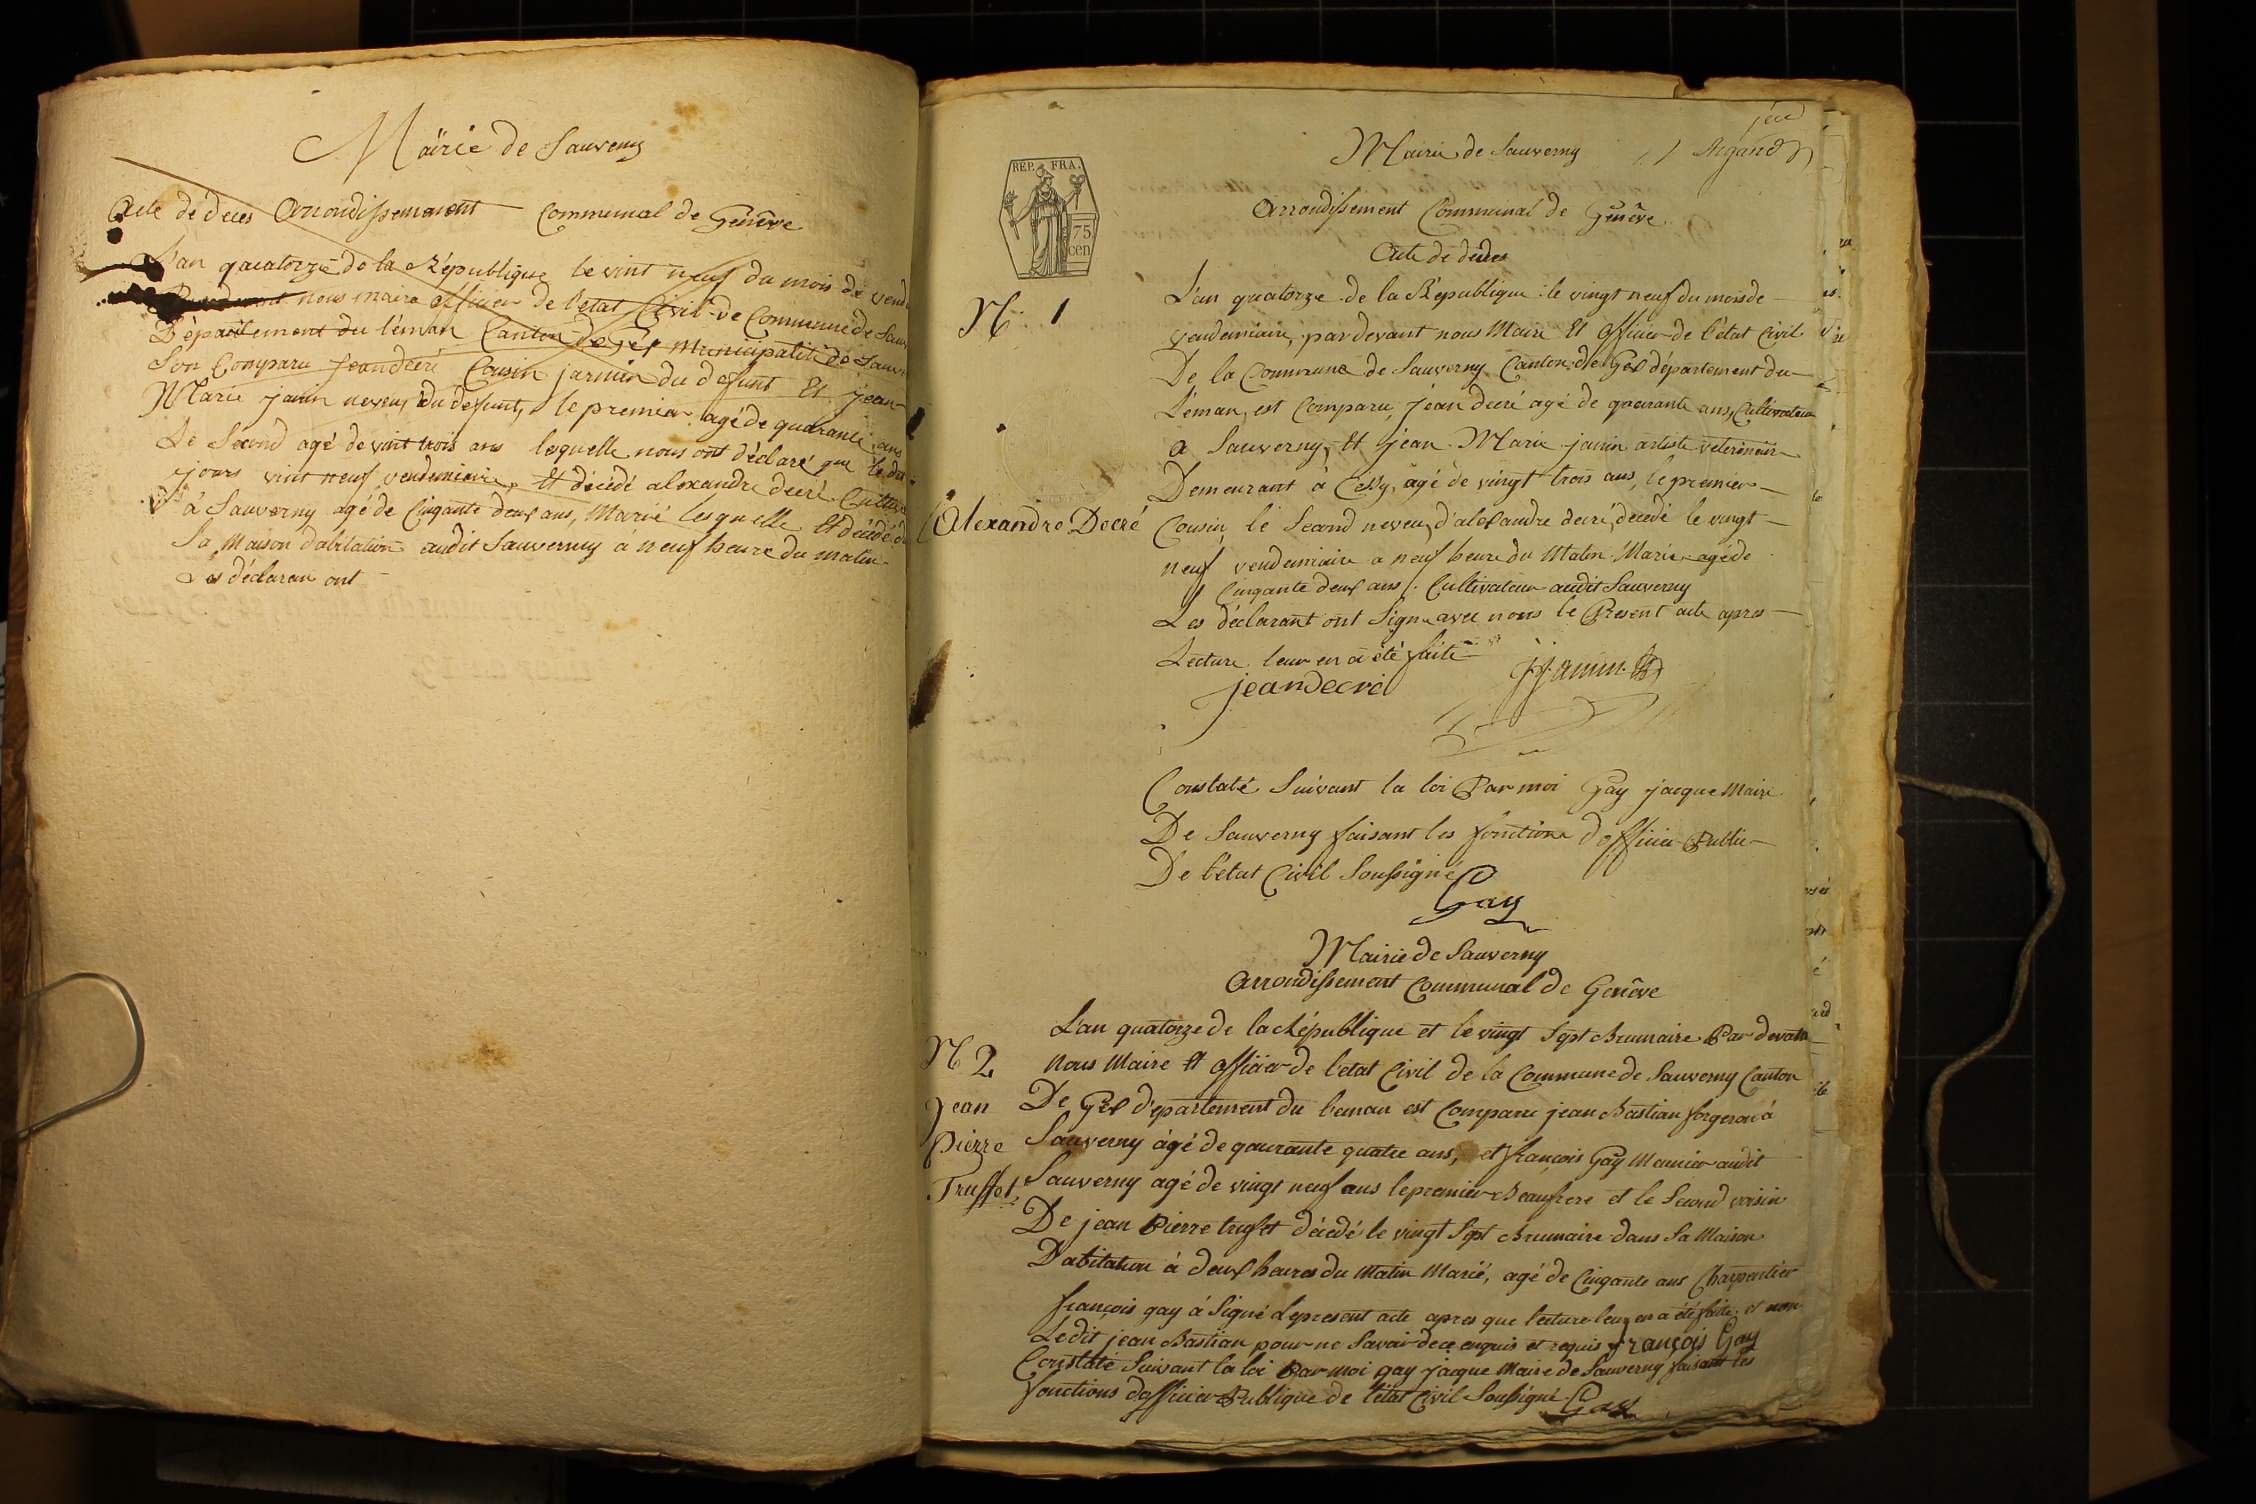 Mairie de Sauverny
Acte de déces Arrondissement Communal de Genêve
L'an quatorze de la République le vint neuf du mois de vend
nous maire officier de l'etat Civil de Commune de Sauv
Département du léman Canton de Gex Municipalité de Sauve
Son Comparu jean decré Cousin jarmin du defunt Et jean
Marie janin neveu du defunt, le premier agé de quarante ans
Le Second agé de vint trois ans lesquelle nous ont déclaré que le
jours vint neuf vendemiaire, Et décédé alexandre decré Cultiv
à Sauverny agé de Cinquante deux ans, Marié lesquelle Et décédé d
Sa Maison d'abitation audit Sauverny à neuf heure du matin
Les déclaran ont
REP. FRA.
75
cen
Mairie de Sauverny
Argand
Arrondissement Communal de Genêve
Acte de déces
N. 1
L'an quatorze de la République le vingt neuf du mois de
vendemiaire, pardevant nous Maire Et officier de l'état Civil
De la Commune de Sauverny Canton de Gex département du
Léman, est Comparu, jean decré agé de quarante ans, Cultivateur
a Sauverny, Et jean Marie janin artiste veterinair
Demeurant à Cessy, agé de vingt trois ans, le premier
Alexandre Decré
Cousin, le Second neveu, d'alexandre decré, décédé le vingt
neuf vendemiaire a neuf heure du Matin Marié agé de
Cinquante deux ans Cultivateur audit Sauverny
Les déclarant ont Signe avec nous le Present acte apres
Lecture leur en a été faite
jean decré
jjanin
Constaté Suivant la loi Par moi Gay jacque Maire
De Sauverny faisant les fonctions d'officier Public
De l'état Civil Soussigné
Gay
Mairie de Sauverny
Arrondissement Communal de Genêve
L'an quatorze de la République et le vingt Sept Brumaire Par devant
N 2
Nous Maire Et officier de l'etat Civil de la Commune de Sauverny Canton
Jean Pierre Truffet
De Gex département du leman est Comparu jean Bastian forgeron à
Sauverny agé de quarante quatre ans, et françois Gay Meunier audit
Sauverny agé de vingt neuf ans le premier Beaufrere et le Second voisin
De jean Pierre trufet décédé le vingt Sept Brumaire dans Sa Maison
D'abitation à deux heures du Matin Marié, agé de Cinquante ans Charpentier
françois gay à Signé Le present acte apres que lecture leur en a été faite, et non
Ledit jean Bastian pour ne Savoir dece enquis et requis François Gay
Constaté Suivant la loi Par moi gay jacque Maire de Sauverny faisant les
fonctions d'officier Publique de l'état Civil Soussigné Gay